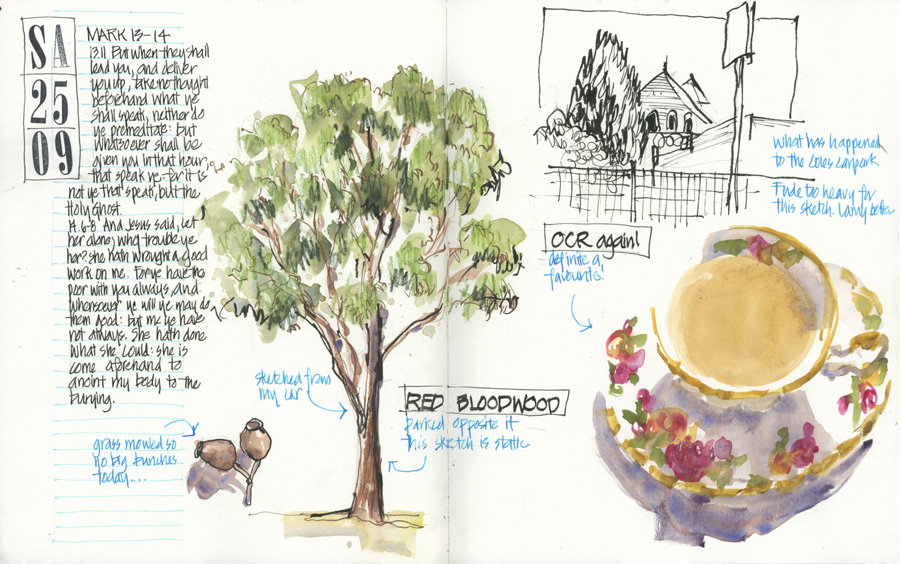 SA
25
09
MARK 13-14
13.11 But when they shall
lead you, and deliver
you up, take no thought
beforehand what ye
shall speak, neither do
ye premeditate: but
whatsoever shall be
given you in that hour,
that speak ye. for it is
not ye that speak, but the
Holy Ghost.
14.6-8 And Jesus said, let
her alone; why trouble ye
her? she hath wrought a good
work on me. For ye have the
poor with you always, and
whensoever ye will ye may do
them good: but me ye have
not always. She hath done
what she could: she is
come aforehand to
anoint my body to the
burying.
grass mowed so
no big bunches
today....
sketched from
my car
RED BLOODWOOD
parked opposite it
this sketch is static
what has happened
to the Coles carpark
Fude too heavy for
this sketch. Lamy better
OCR again!
definite a
favourite!